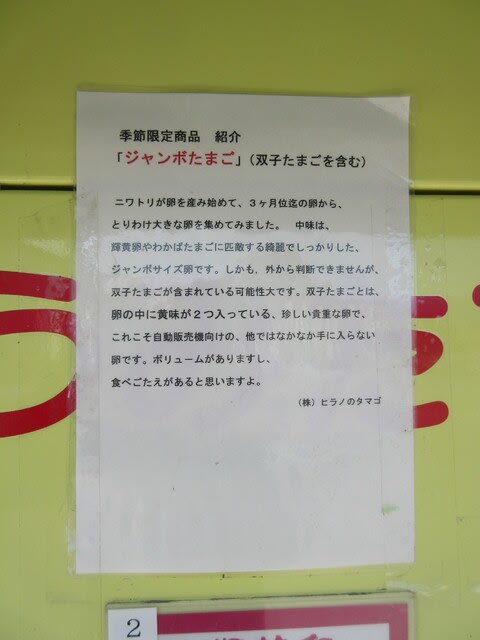 季節限定商品　紹介
「ジャンボたまご」（双子たまごを含む）
ニワトリが卵を産み始めて、３ヶ月位迄の卵から、
とりわけ大きな卵を集めてみました。　中味は、
輝黄卵やわかばたまごに匹敵する綺麗でしっかりした、
ジャンボサイズ卵です。しかも、外から判断できませんが、
双子たまごが含まれている可能性大です。双子たまごとは、
卵の中に黄味が２つ入っている、珍しい貴重な卵で、
これこそ自動販売機向けの、他ではなかなか手に入らない
卵です。ボリュームがありますし、
食べごたえがあると思いますよ。
（株）ヒラノのタマゴ
2